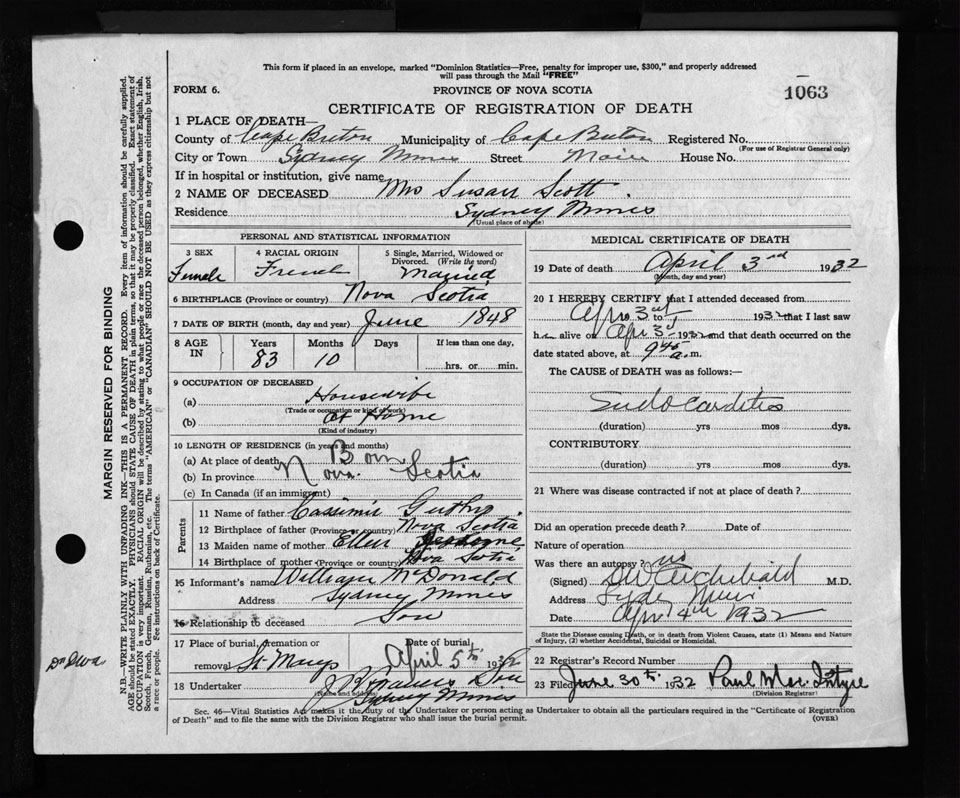 This form if placed in an envelope, marked "Dominion Statistics—Free, penalty for improper use, $300," and properly addressed
will pass through the Mail "FREE"
FORM 6.
PROVINCE OF NOVA SCOTIA
1063
CERTIFICATE OF REGISTRATION OF DEATH
1 PLACE OF DEATH—
County of Cape Breton Municipality of Cape Breton Registered No.
(For use of Registrar General only)
City or Town Sydney Mines Street Main House No.
If in hospital or institution, give name
2 NAME OF DECEASED Mrs Susan Scott.
Residence Sydney Mines
(Usual place of abode)
PERSONAL AND STATISTICAL INFORMATION
3 SEX Female
4 RACIAL ORIGIN French
5 Single, Married, Widowed or Divorced. (Write the word) Married
6 BIRTHPLACE (Province or country) Nova Scotia
7 DATE OF BIRTH (month, day and year) June 1848
8 AGE IN Years 83 Months 10 Days If less than one day, hrs. or min.
9 OCCUPATION OF DECEASED
(a) Housewife
(Trade or occupation or kind of work)
(b) at Home
(Kind of industry)
10 LENGTH OF RESIDENCE (in years and months)
(a) At place of death Born
(b) In province Nova Scotia
(c) In Canada (if an immigrant)
Parents
11 Name of father Cassimir
12 Birthplace of father (Province or country) Nova Scotia
13 Maiden name of mother Ellen
14 Birthplace of mother (Province or country) Nova Scotia
15 Informant's name William McDonald
Address Sydney Mines
16 Relationship to deceased Son
17 Place of burial, cremation or removal St. Marys Date of burial, April 5th 1932
18 Undertaker Son
(Name and address) Sydney Mines
MEDICAL CERTIFICATE OF DEATH
19 Date of death April 3rd 1932
(Month, day and year)
20 I HEREBY CERTIFY that I attended deceased from
Apr 3rd to 1932 that I last saw
her alive on Apr 3rd 1932 and that death occurred on
date stated above, at 9 45 a.m.
The CAUSE of DEATH was as follows:—
Endocarditis
(duration) yrs mos dys.
CONTRIBUTORY
(duration) yrs mos dys.
21 Where was disease contracted if not at place of death?
Did an operation precede death? Date of
Nature of operation
Was there an autopsy? no
(Signed) Archibald M.D.
Address Syd Mines
Date Apr 4th 1932
State the Disease causing Death, or in death from Violent Causes, state (1) Means and Nature
of Injury, (2) whether Accidental, Suicidal or Homicidal.
22 Registrar's Record Number
23 Filed June 30th. 1932 Paul MacIntyre
(Division Registrar)
Sec. 46—Vital Statistics Act makes it the duty of the Undertaker or person acting as Undertaker to obtain all the particulars required in the "Certificate of Registration
of Death" and to file the same with the Division Registrar who shall issue the burial permit.
(OVER)
MARGIN RESERVED FOR BINDING
N.B.—WRITE PLAINLY WITH UNFADING INK—THIS IS A PERMANENT RECORD. Every item of information should be carefully supplied.
AGE should be stated EXACTLY. PHYSICIANS should STATE CAUSE OF DEATH in plain terms, so that it may be properly classified. Exact statement of
OCCUPATION is very important. RACIAL ORIGIN will be described by stating to what people or race the deceased person belonged, whether English, Irish,
Scotch, French, German, Russian, Ruthenian, etc. The terms "AMERICAN" or "CANADIAN" SHOULD NOT BE USED as they express citizenship but not
a race or people. See instructions on back of Certificate.